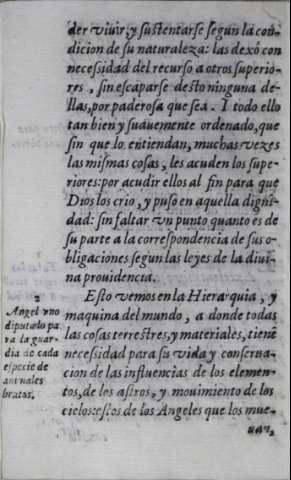 der viuir, y sustentarse segun la con-
dicion de su naturaleza: las dexò con
necessidad del recurso a otros superio-
res, sin escaparse desto ninguna de-
llas, por paderosa que sea. I todo ello
tan bien y suduemente ordenado, que
sin que lo entiendan, muchas vezes
las mismas cosas, les acuden los supe-
riores: por acudir ellos al fin para que
Dios los crio, y puso en aquella digni-
dad: sin faltar vn punto quanto es de
su parte a la correspondencia de sus o-
bligaciones segun las leyes de la diui-
na prouidencia.
Esto vemos en la Hierarquia, y
maquina del mundo, a donde todas
las cosas terrestres, y materiales, tiene
necessidad para su vida y conserua-
cion de las influencias de los elemen-
tos, de los astros, y mouimiento de los
cielos: estos de los Angeles que los mue-
uan,
2
Angel vno
diputado pa-
ra la guar-
dia de cada
especie de
animales
brutos.